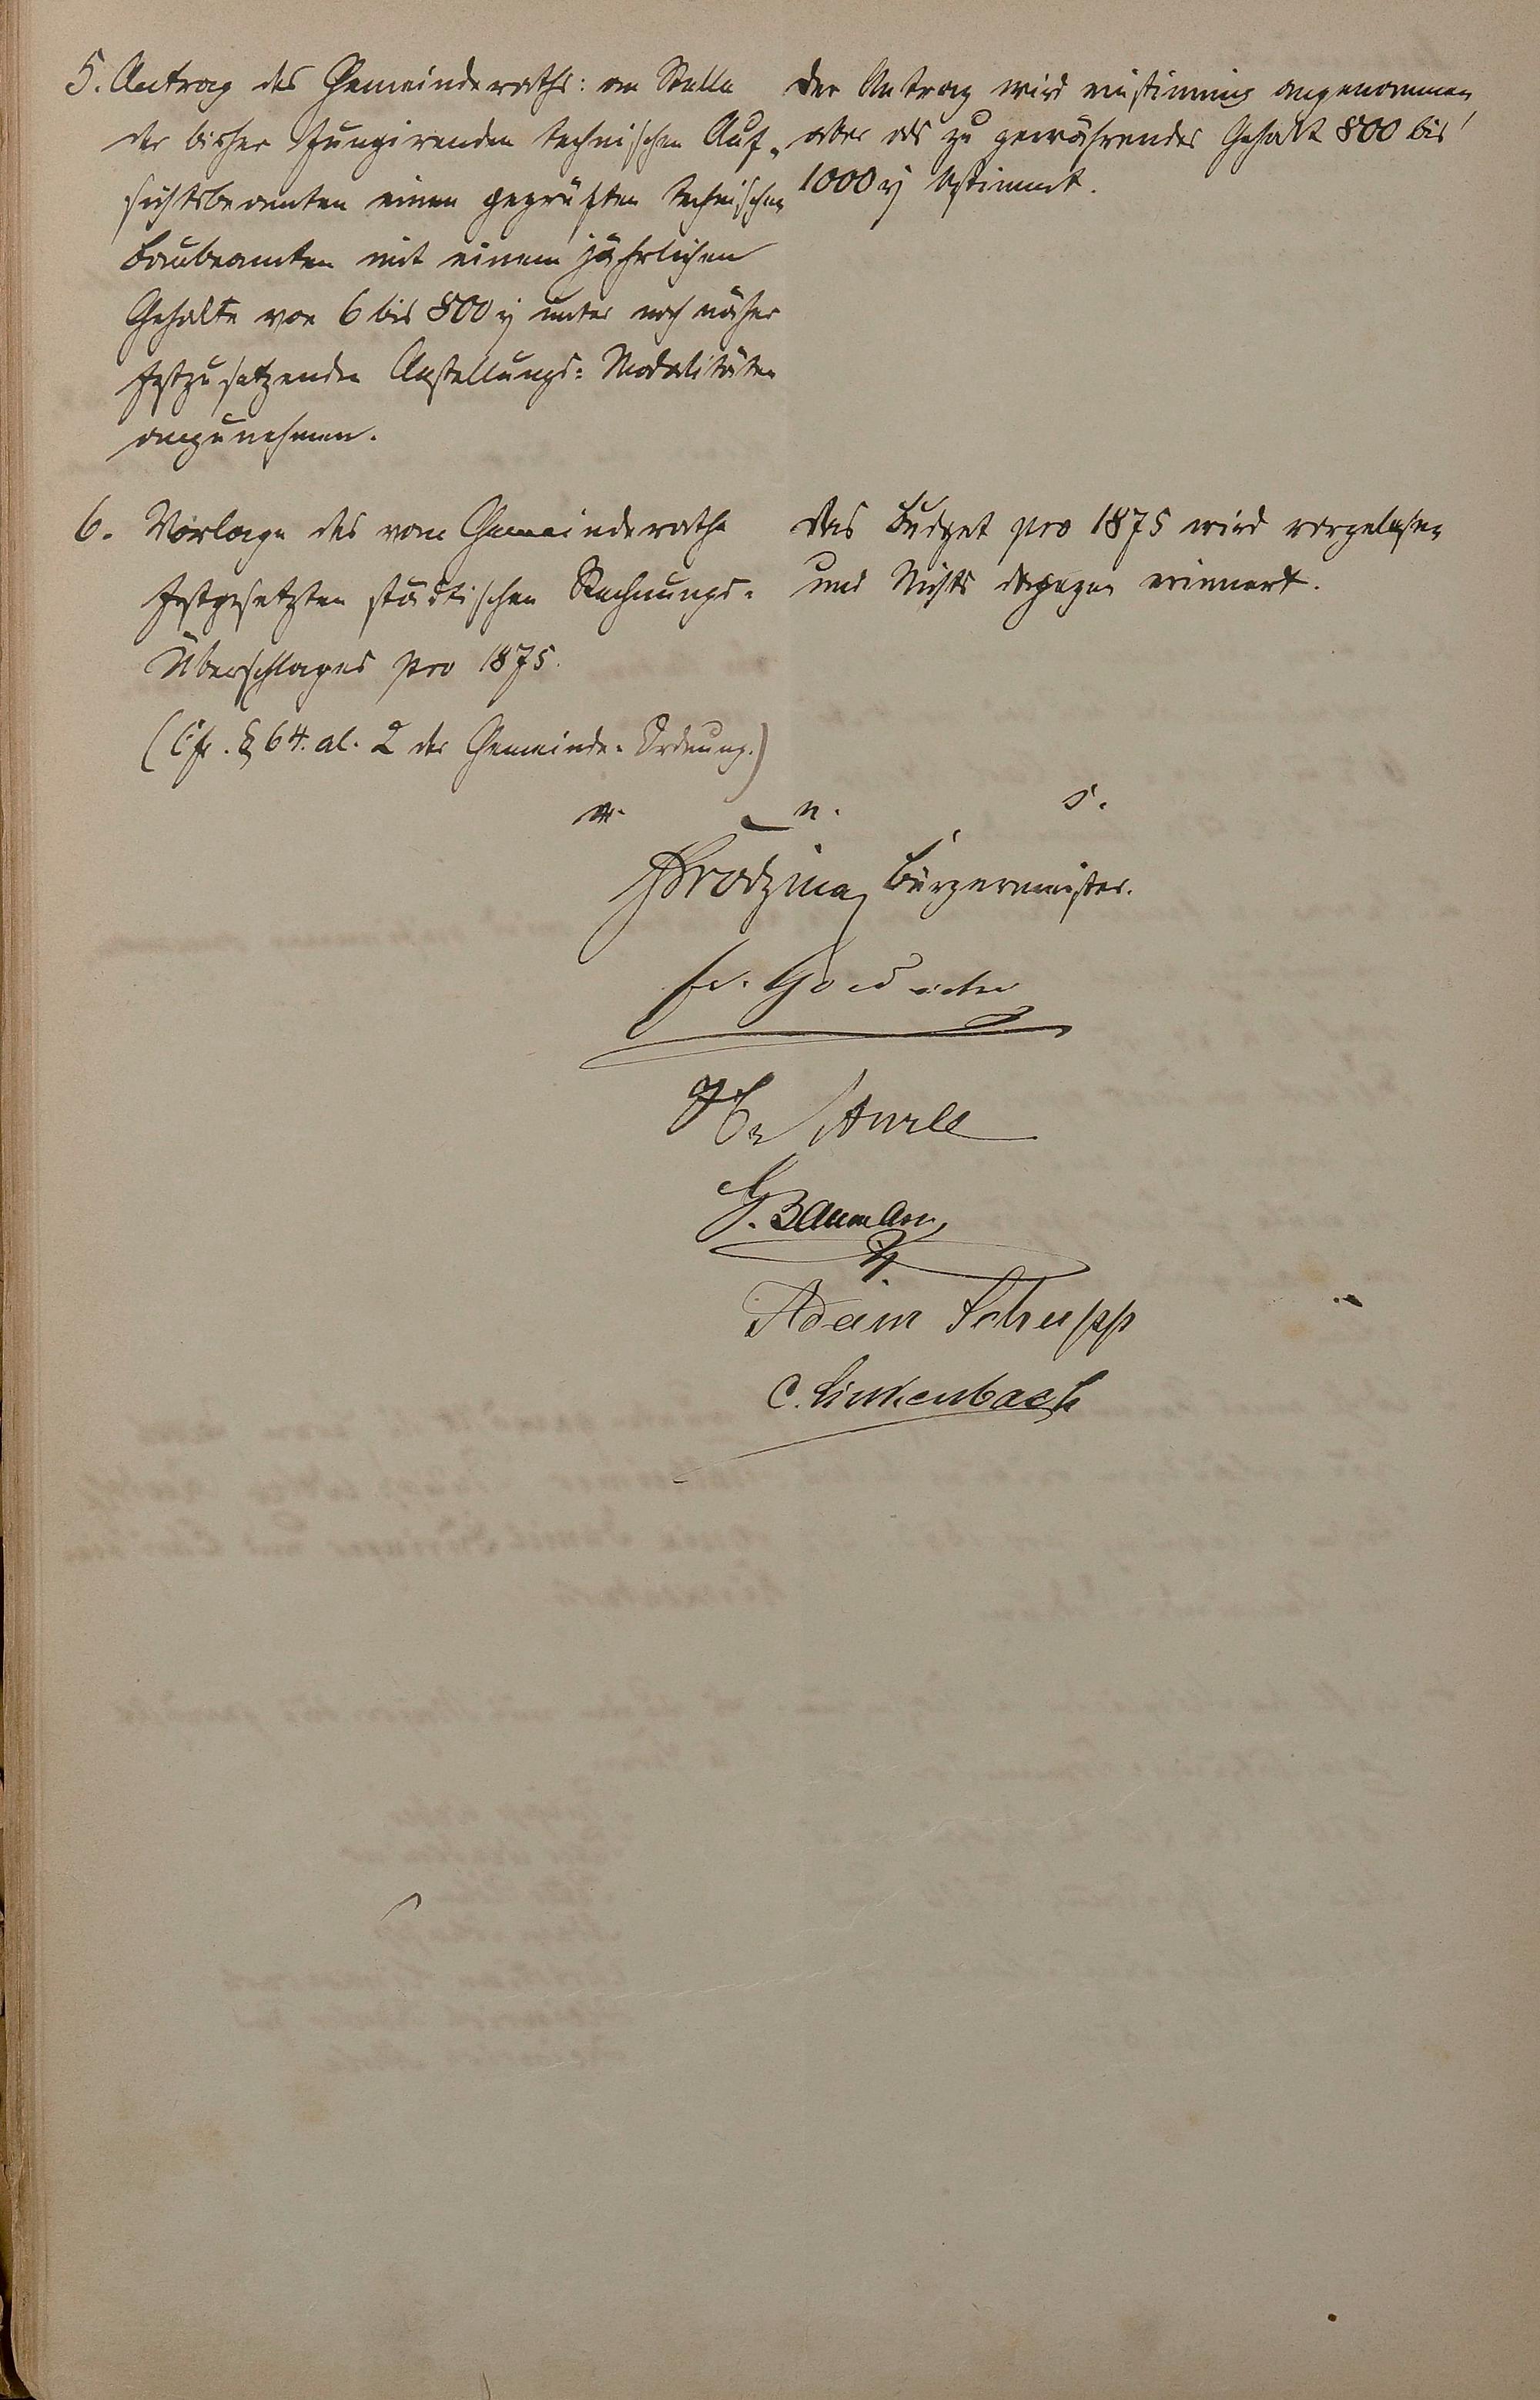 5. Antrag des Gemeinderaths: an Stelle
der bisher fungirenden technischen Auf-
sichtsbeamten einen geprüften technischen
Baubeamten mit einem jährlichen
Gehalte von 6 bis 800 unter noch näher
festzusetzenden Anstellungs-Modalitäten
anzunehmen.
Der Antrag wird einstimmig angenommen,
aber als zu gewährendes Gehalt 800 bis
1000 bestimmt.
6. Vorlage des vom Gemeinderathe
festgesetzten städtischen Rechnungs-
Überschlages pro 1875.
(Cfr. § 64. al. 2 der Gemeinde-Ordnung.)
Das Budget pro 1875 wird vorgelesen
und Nichts dagegen erinnert.
v. n. s.
Bürgermeister.
G. Baumann
Adam Schupp
C. Linkenbach